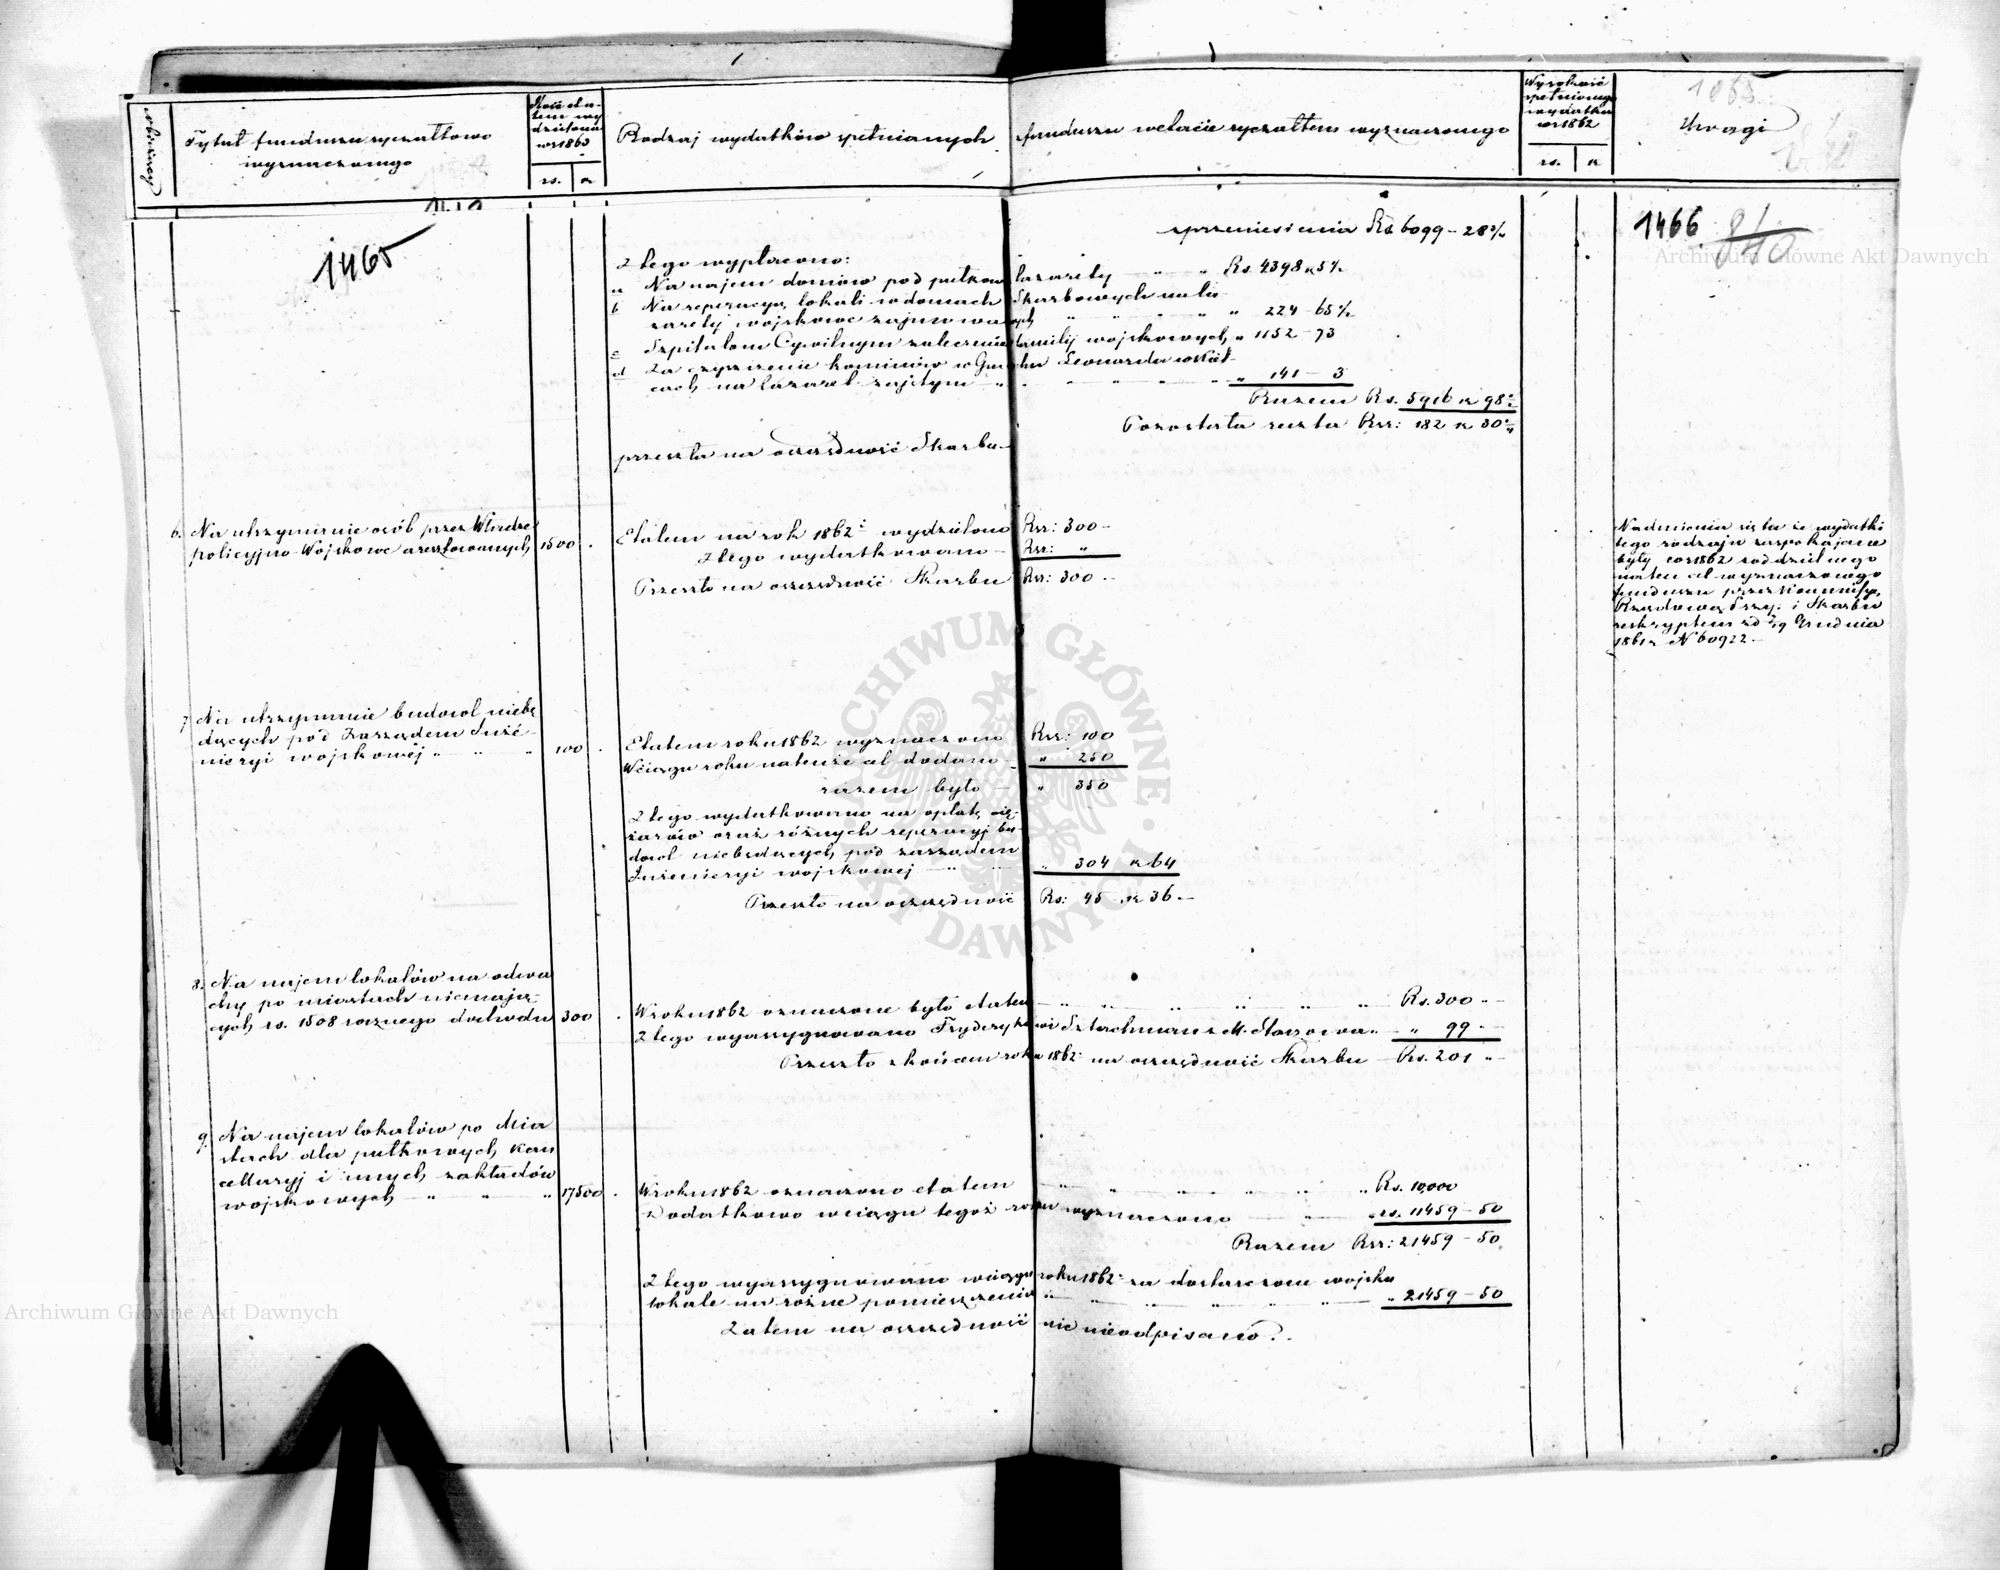 Tytuł funduszu ryczałtowo
wyznaczonego
rs. k
Rodzaj wydatków spełnianych z funduszu w etacie ryczałtem wyznaczonego
Wysokość
spełnionego
wydatku
w r 1862
rs. k
Uwagi
1465
1466
840
z przeniesienia Rs 6099 - 28½
Z tego wypłacono:
a Na najem domów pod pułkowe lazarety " " Rs. 4398 k 5½
b Na reperacyą lokali w domach Skarbowych na la-
zarety wojskowe zajmowanych " " " " " 224 - 65½
c Szpitalom Cywilnym za leczenie familij wojskowych " 1152 - 73
d Za czyszczenie kominów w Gmachu Leonarda w Kiel-
cach na lazaret zajętym " " " " " 141 - 3
Razem Rs. 5916 k 98
Pozostała reszta Rsr: 182 k 30
przeszła na oszczędność Skarbu
6. Na utrzymanie osób przez Władze
policyjno-Wojskowe aresztowanych 1500 .
Etatem na rok 1862 wydzielono Rsr: 300 -
Z tego wydatkowano - Rsr: "
Przeszło na oszczędność Skarbu Rsr: 300 -
Nadmienia się tu że wydatki
tego rodzaju zaspokajane
były w r 1862 z oddzielnego
na ten cel wyznaczonego
funduszu przez Kommissyę
Rządową Przy: i Skarbu
reskryptem z d 7/19 Grudnia
1861 r N 60922 -
7 Na utrzymanie budowl niebę
dących pod Zarządem Inży-
nieryi wojskowéj " " " 100 .
Etatem roku 1862 wyznaczono Rsr: 100
W ciągu roku na tenże cel dodano - " 250
razem było - " 350
Z tego wydatkowano na opłatę cię-
żarów oraz różnych reperacyj bu-
dowl niebędących pod zarządem
Inżenieryi wojskowej - " - " 304 k 64
Przeszło na oszczędność Rs: 45 k 36 -
8. Na najem lokalów na odwa
chy po miastach niemają-
cych rs. 1508 rocznego dochodu 300 .
W roku 1862 oznaczone było etatem " " " " " " Rs. 300 " -
Z tego wyassygnowano Fryderykowi Sztachman z M. " " 99 " -
Przeszło z końcem roku 1862 na oszczędność Skarbu - Rs. 201 " -
9. Na najem lokalów po Mia
stach dla pułkowych kan
cellaryj i innych zakładów
wojskowych - " " " 17500 .
W roku 1862 oznaczono etatem " " " " " " Rs. 10,000
Dodatkowo w ciągu tegoż roku wyznaczono - " - rs. 11459 - 50
Razem Rsr: 21459 - 50
Z tego wyassygnowano w ciągu roku 1862 za dostarczone wojsku
lokale na różne pomieszczenia " " " " " " 21459 - 50
Zatem na oszczędność nic nieodpisano.
ARCHIWUM GŁÓWNE
AKT DAWNYCH
Archiwum Główne Akt Dawnych
Archiwum Główne Akt Dawnych